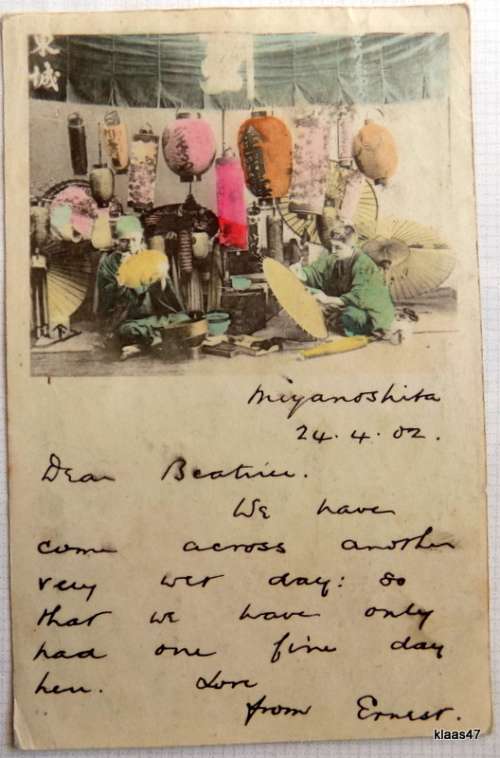 東城
Miyanoshita
24.4.02.
Dear Beatrice.
We have
come across another
very wet day: so
that we have only
had one fine day
here. Love
from Ernest.
klaas47